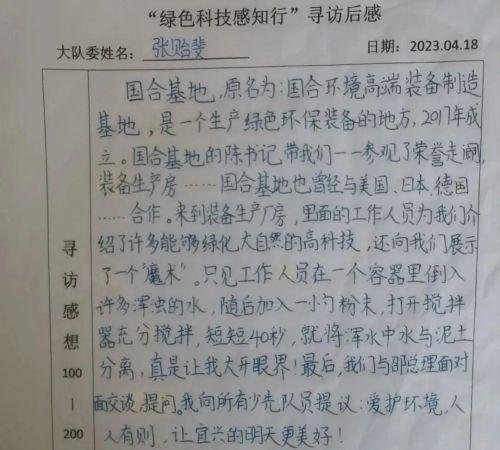 “绿色科技感知行”寻访后感
大队委姓名：张贻斐 日期：2023.04.18
国合基地，原名为：国合环境高端装备制造
基地，是一个生产绿色环保装备的地方，2017年成
立。国合基地的陈书记带我们一一参观了荣誉走廊，
装备生产房……国合基地也曾经与美国、日本、德国
……合作。来到装备生产厂房，里面的工作人员为我们介
绍了许多能够绿化大自然的高科技，还向我们展示
了一个“魔术”。只见工作人员在一个容器里倒入
许多浑浊的水，随后加入一小勺粉末，打开搅拌
器充分搅拌，短短40秒，就将浑水中水与泥土
分离，真是让我大开眼界！最后，我们与邵总理面对
面交谈，提问。我向所有少先队员提议：爱护环境，人
人有则，让宜兴的明天更美好！
寻
访
感
想
100
—
200